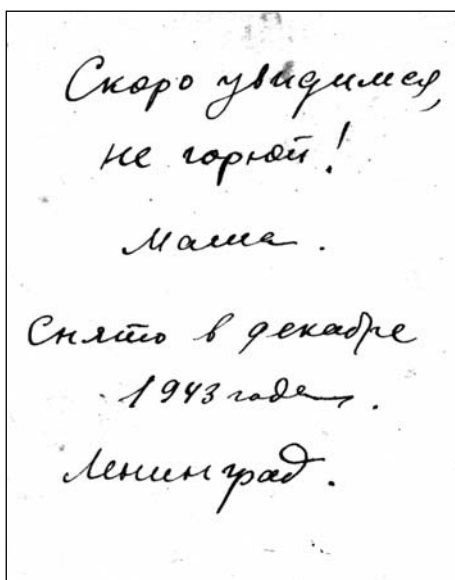 Скоро увидимся,
не горюй!
Маша.
Снято в декабре
1943 года.
Ленинград.